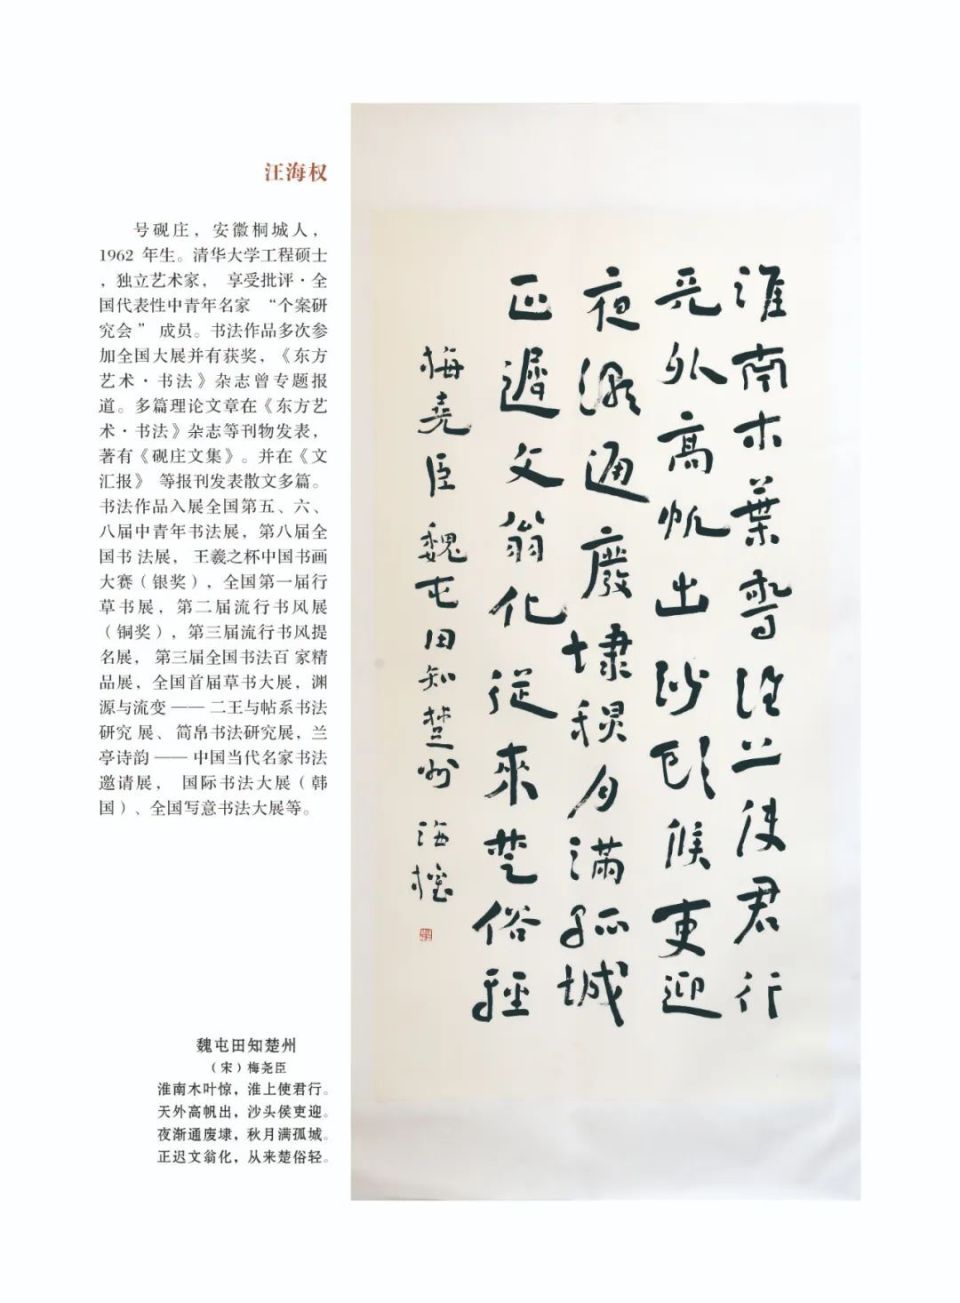 汪海权
号砚庄，安徽桐城人，
1962 年生。清华大学工程硕士
，独立艺术家， 享受批评·全
国代表性中青年名家 “个案研
究会 ” 成员。书法作品多次参
加全国大展并有获奖，《东方
艺术·书法》杂志曾专题报
道。多篇理论文章在《东方艺
术·书法》杂志等刊物发表，
著有《砚庄文集》。并在《文
汇报》 等报刊发表散文多篇。
书法作品入展全国第五、六、
八届中青年书法展，第八届全
国书 法展， 王羲之杯中国书画
大赛（银奖），全国第一届行
草书展，第二届流行书风展
（铜奖），第三届流行书风提
名展， 第三届全国书法百 家精
品展，全国首届草书大展，渊
源与流变 —— 二王与帖系书法
研究 展、 简帛书法研究展，兰
亭诗韵 —— 中国当代名家书法
邀请展， 国际书法大展（韩
国）、全国写意书法大展等。
淮南木葉驚淮上使君行
天外高帆出沙頭候吏迎
夜漸通廢埭秋月滿孤城
正遲文翁化從來楚俗輕
梅堯臣魏屯田知楚州 海權
魏屯田知楚州
（宋）梅尧臣
淮南木叶惊，淮上使君行。
天外高帆出，沙头侯吏迎。
夜渐通废埭，秋月满孤城。
正迟文翁化，从来楚俗轻。